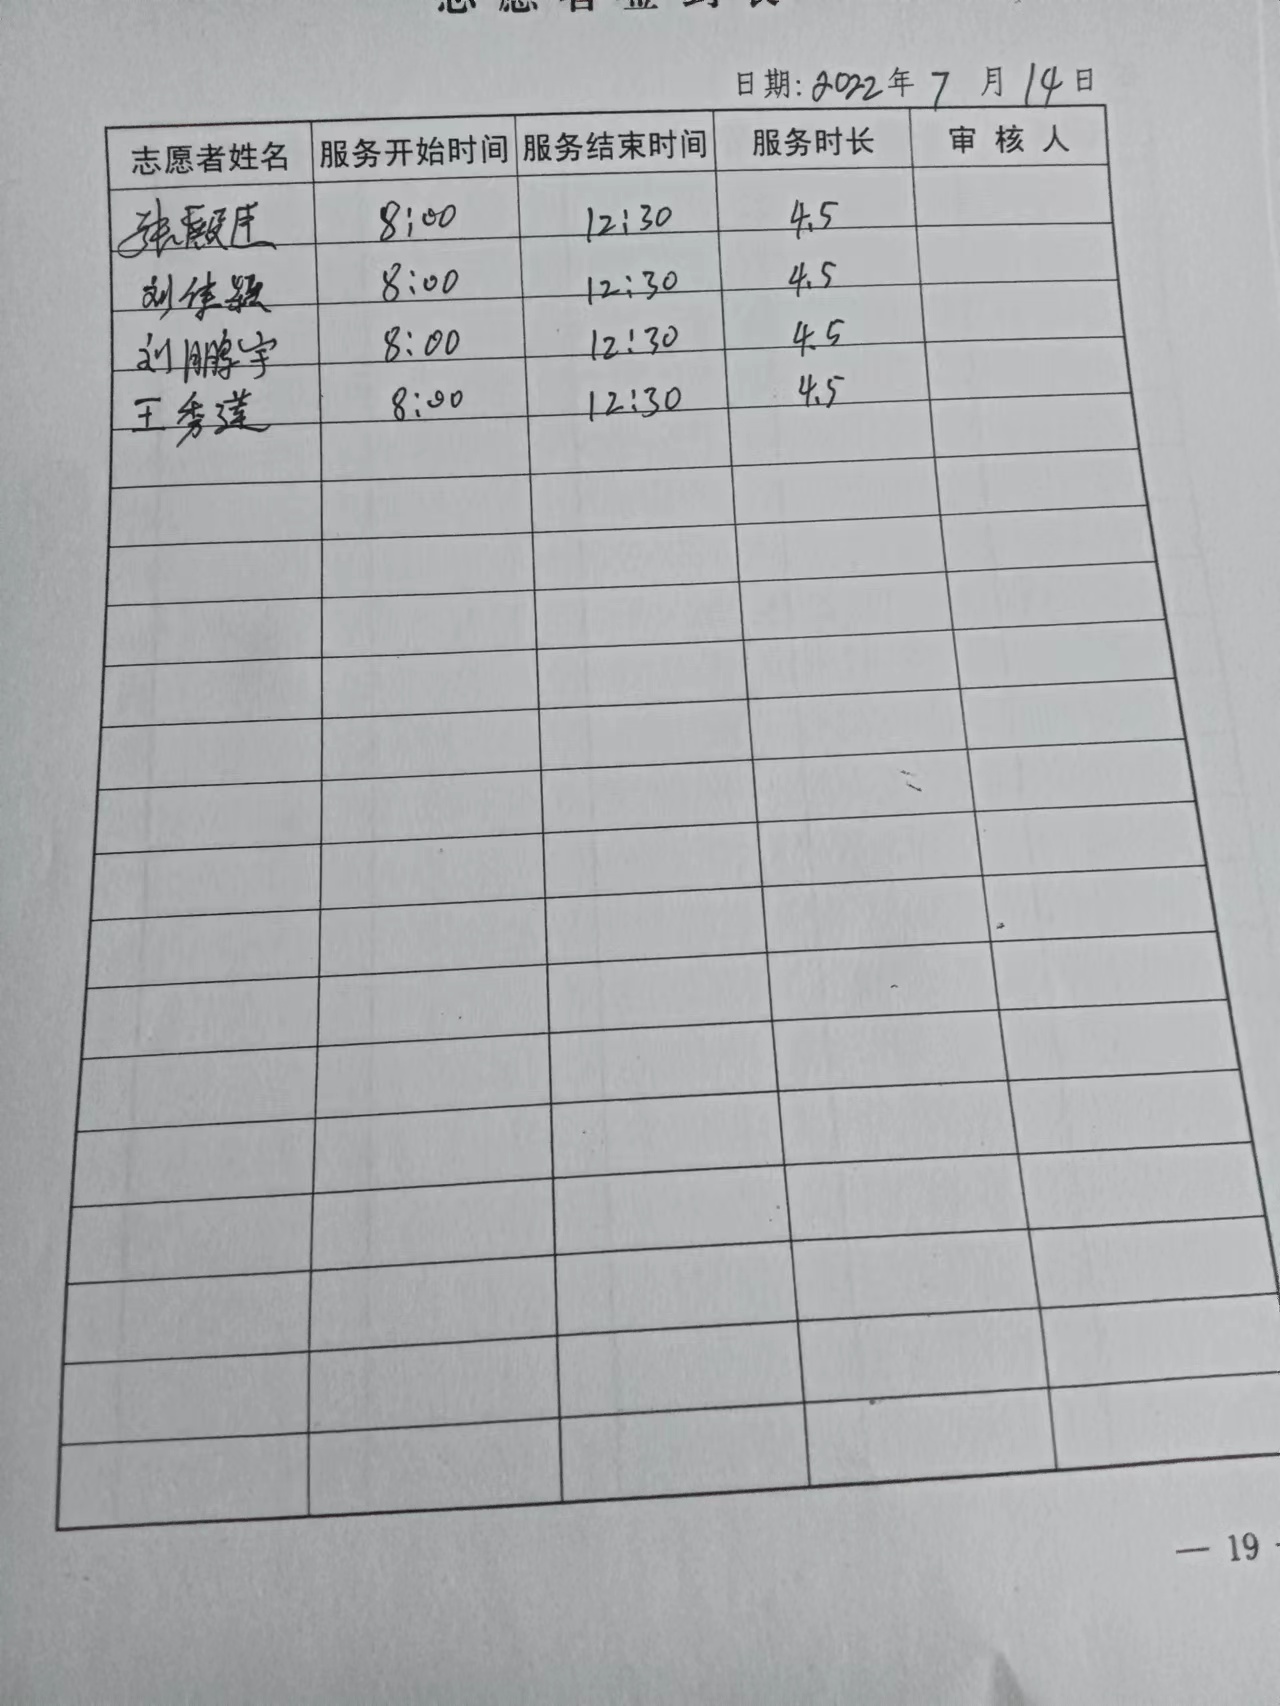 志愿者签到表
日期:2022年7月14日
志愿者姓名 服务开始时间 服务结束时间 服务时长 审核人
张殿臣 8:00 12:30 4.5
刘佳颖 8:00 12:30 4.5
刘鹏宇 8:00 12:30 4.5
王秀莲 8:00 12:30 4.5
— 19